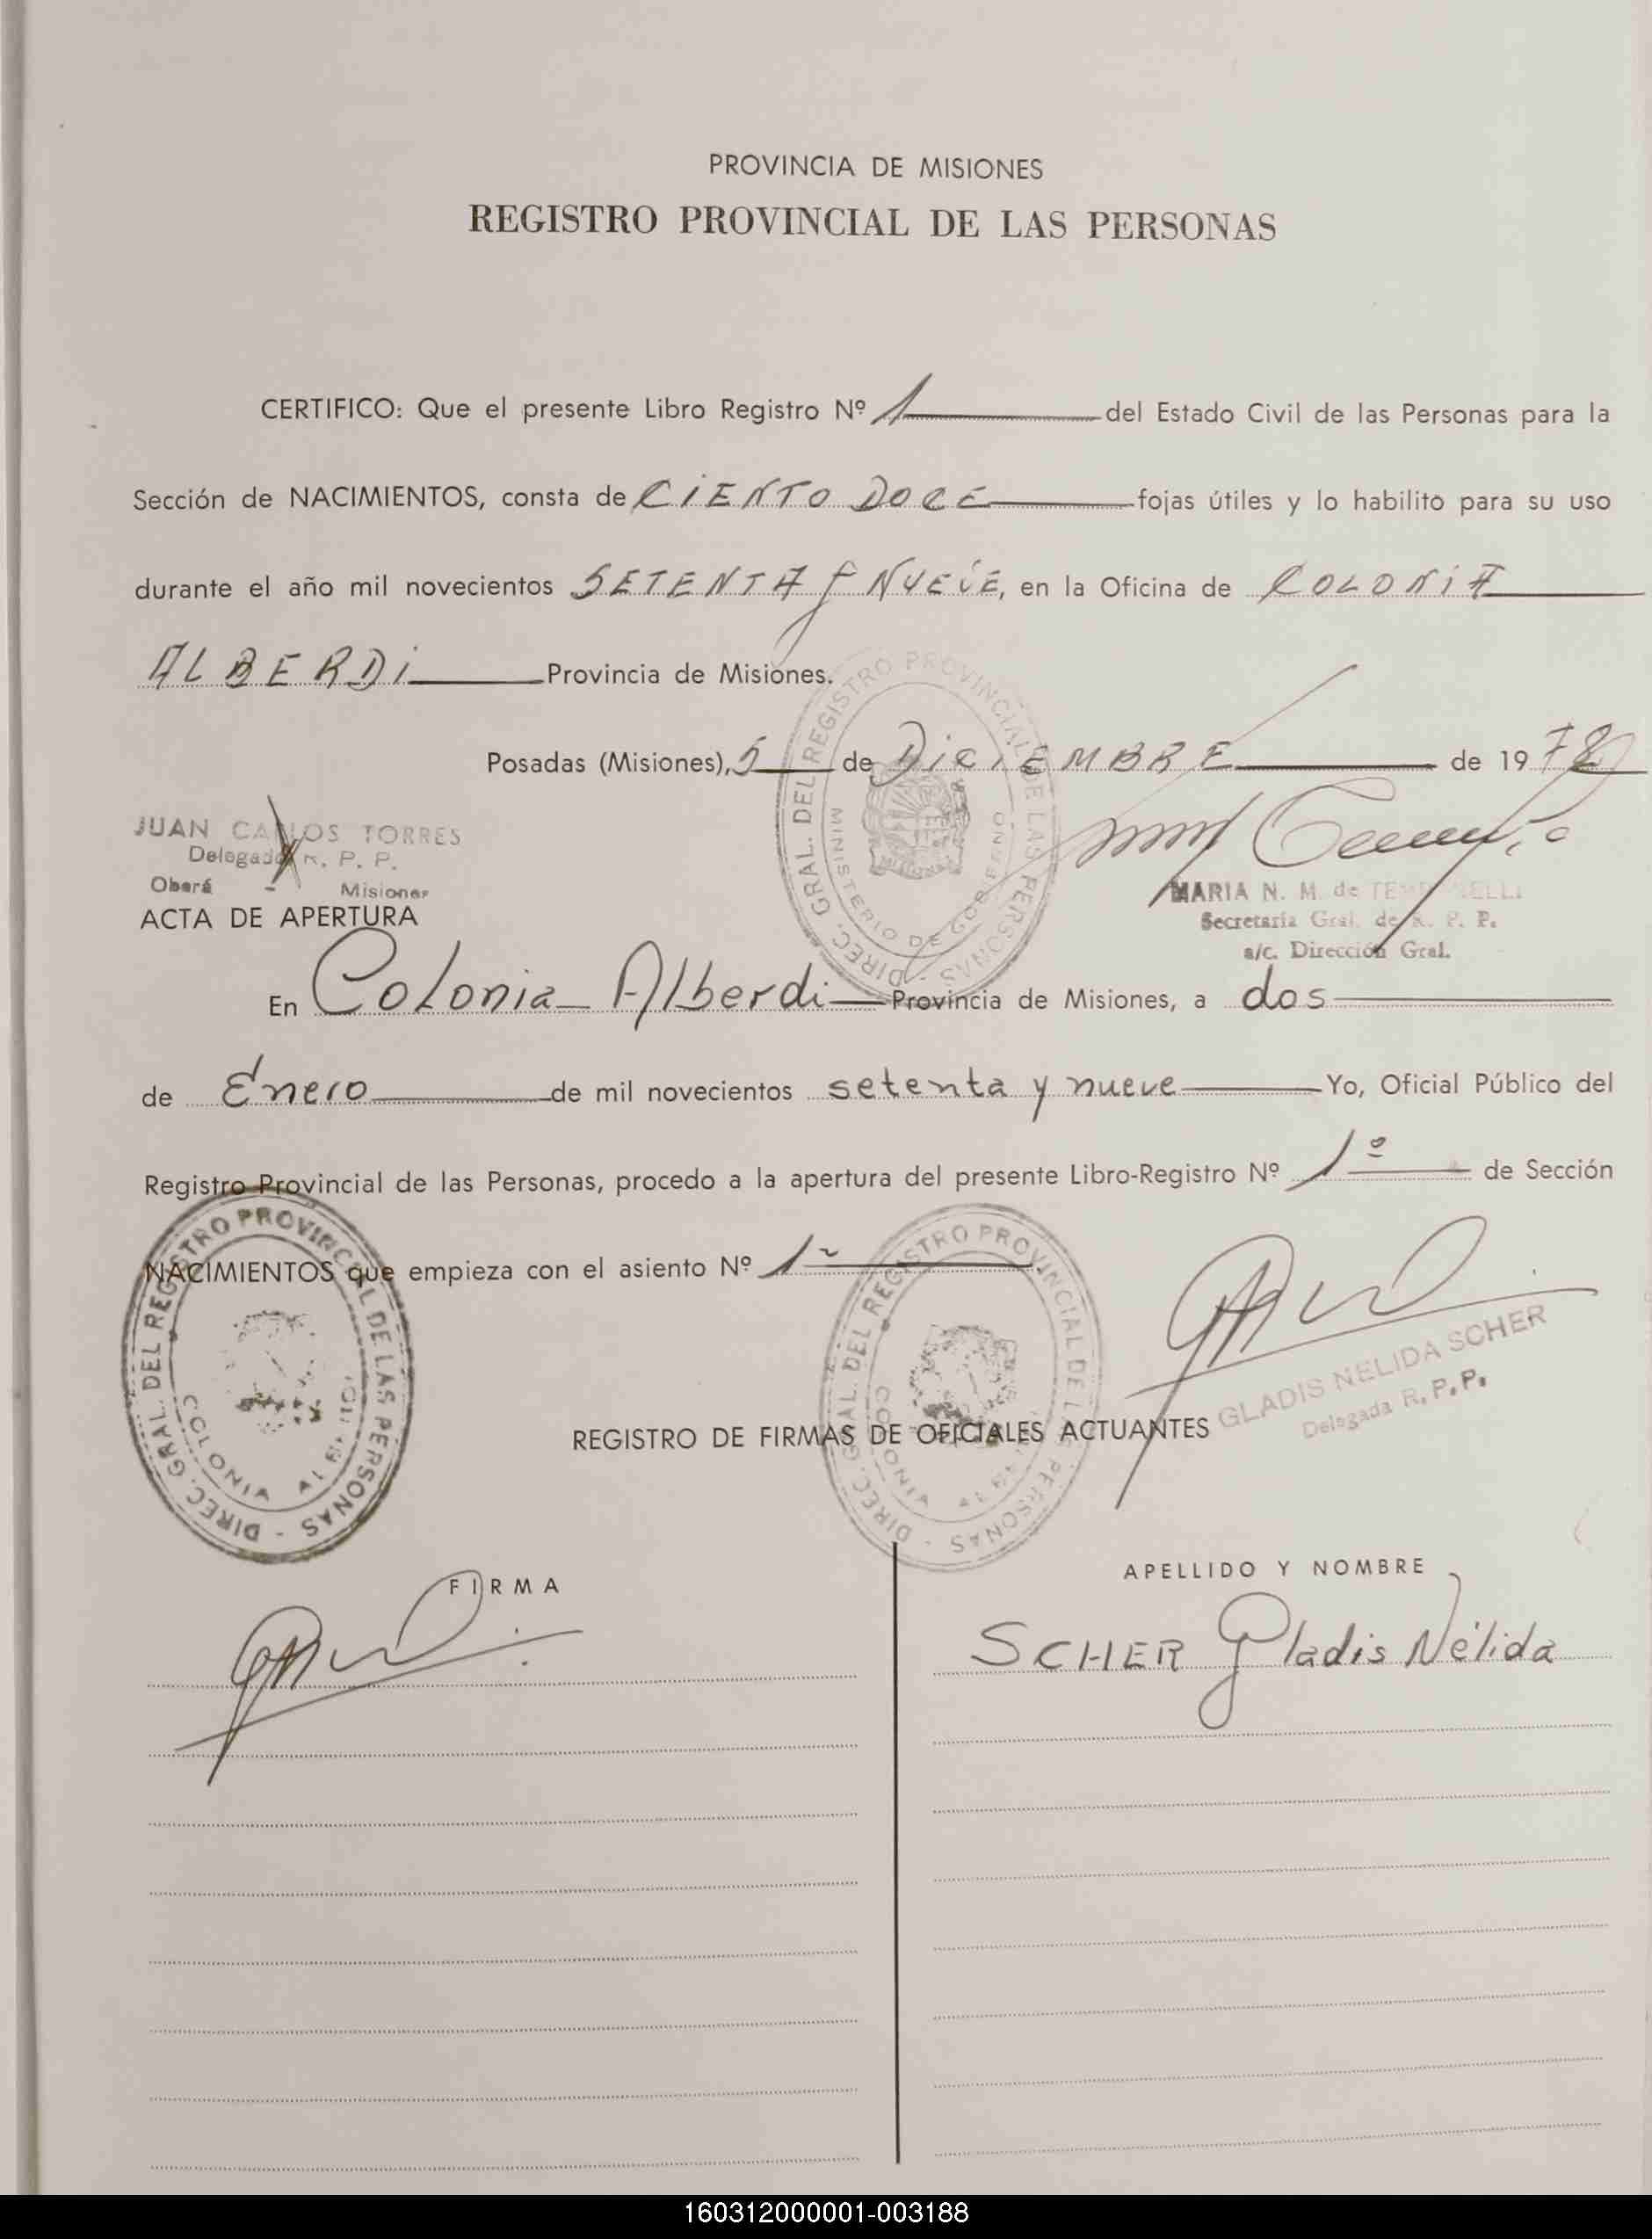 PROVINCIA DE MISIONES
REGISTRO PROVINCIAL DE LAS PERSONAS
CERTIFICO: Que el presente Libro Registro Nº 1 del Estado Civil de las Personas para la
Sección de NACIMIENTOS, consta de CIENTO DOCE fojas útiles y lo habilito para su uso
durante el año mil novecientos SETENTA y NUEVE, en la Oficina de COLONIA
ALBERDI Provincia de Misiones.
Posadas (Misiones), 5 de DICIEMBRE de 1978
JUAN CARLOS TORRES
Delegado R. P. P.
Oberá - Misiones
MARIA N. M. de
Secretaría Gral. de R. P. P.
a/c. Dirección Gral.
DIREC. GRAL. DEL REGISTRO PROVINCIAL DE LAS PERSONAS -
MINISTERIO DE GOBIERNO
ACTA DE APERTURA
En Colonia Alberdi Provincia de Misiones, a dos
de Enero de mil novecientos setenta y nueve Yo, Oficial Público del
Registro Provincial de las Personas, procedo a la apertura del presente Libro-Registro Nº 1º de Sección
NACIMIENTOS que empieza con el asiento Nº 1
DIREC. GRAL. DEL REGISTRO PROVINCIAL DE LAS PERSONAS -
COLONIA
DIREC. GRAL. DEL REGISTRO PROVINCIAL DE LAS PERSONAS -
COLONIA
GLADIS NELIDA SCHER
Delegada R. P. P.
REGISTRO DE FIRMAS DE OFICIALES ACTUANTES
FIRMA
APELLIDO Y NOMBRE
SCHER Gladis Nélida
160312000001-003188